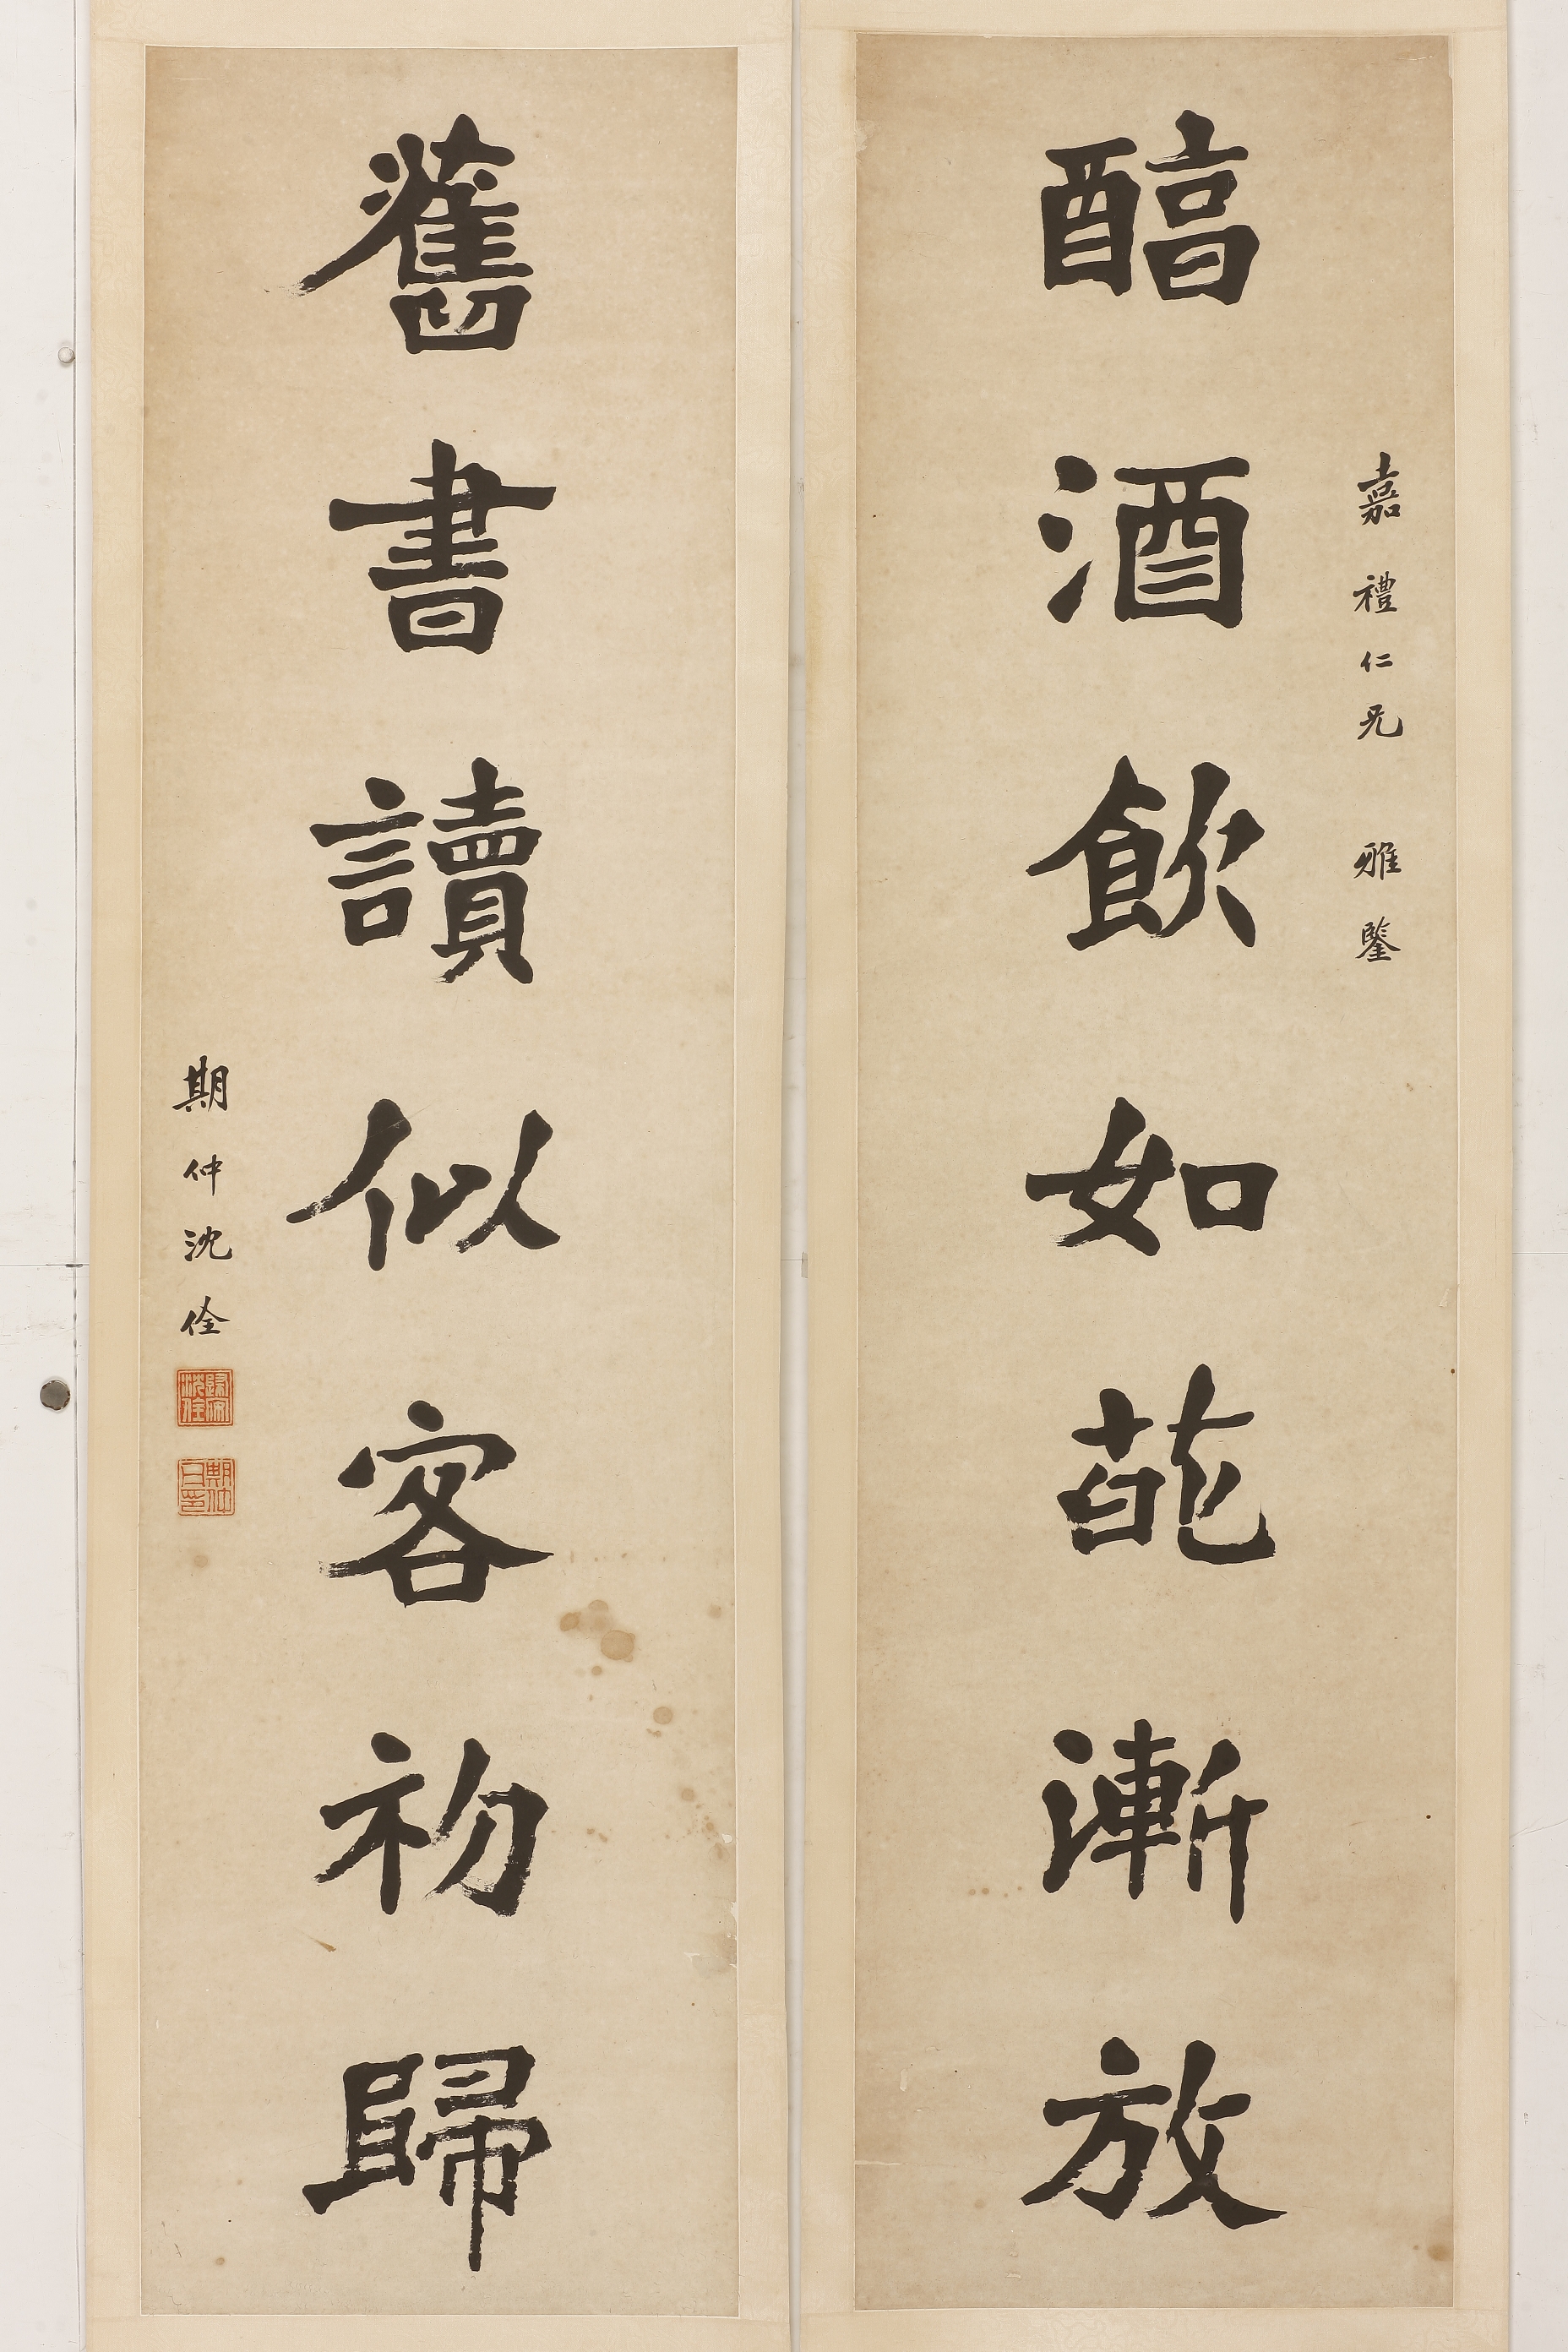 醇酒飲如花漸放
嘉禮仁兄 雅鑒
舊書讀似客初歸
期仲沈佺
歸安沈佺
期仲